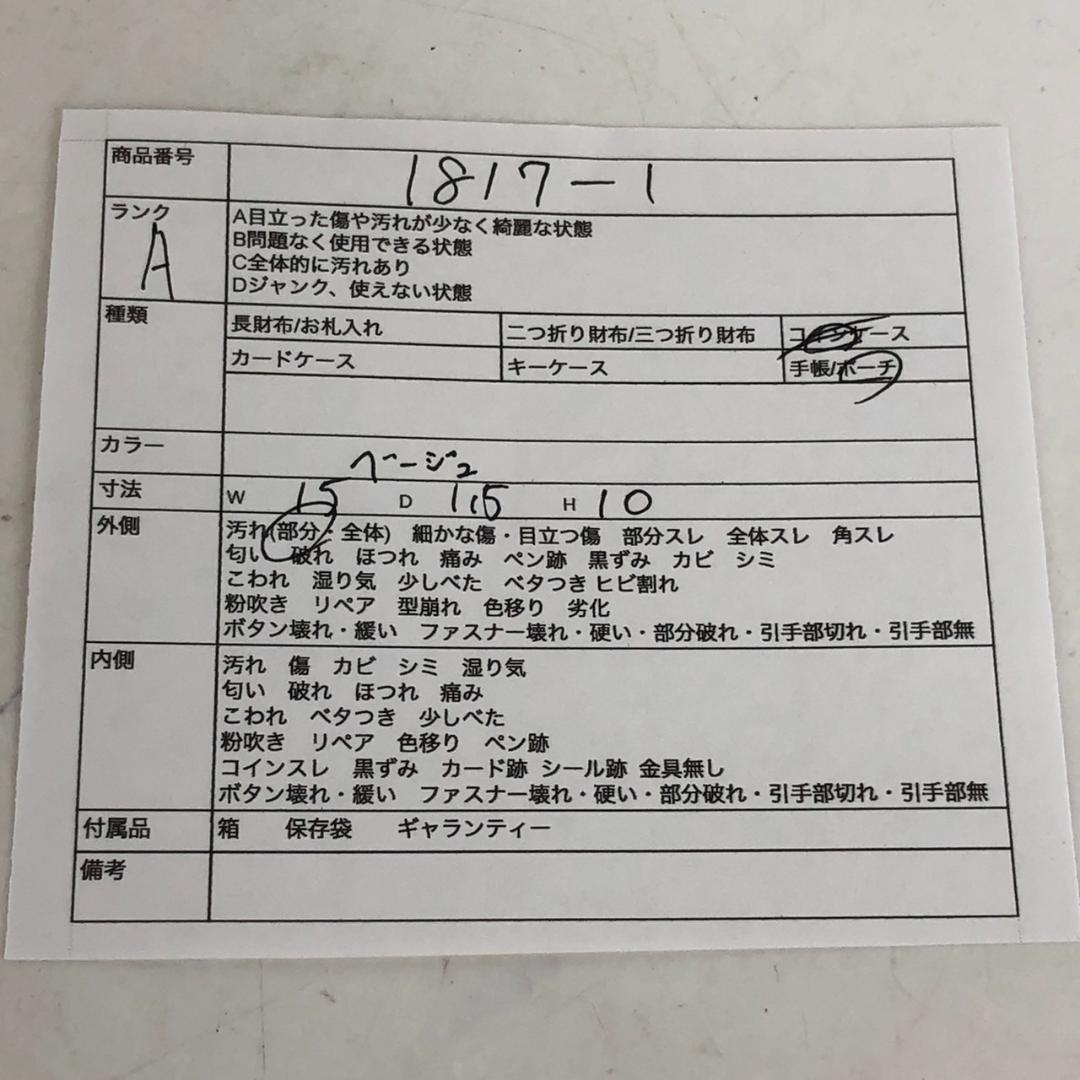 商品番号 1817-1
ランク A
A目立った傷や汚れが少なく綺麗な状態
B問題なく使用できる状態
C全体的に汚れあり
Dジャンク、使えない状態
種類
長財布/お札入れ 二つ折り財布/三つ折り財布 コインケース
カードケース キーケース 手帳/ポーチ
カラー ベージュ
寸法 W 15 D 1.5 H 10
外側
汚れ(部分・全体) 細かな傷・目立つ傷 部分スレ 全体スレ 角スレ
匂い 破れ ほつれ 痛み ペン跡 黒ずみ カビ シミ
こわれ 湿り気 少しべた ベタつき ヒビ割れ
粉吹き リペア 型崩れ 色移り 劣化
ボタン壊れ・緩い ファスナー壊れ・硬い・部分破れ・引手部切れ・引手部無
内側
汚れ 傷 カビ シミ 湿り気
匂い 破れ ほつれ 痛み
こわれ ベタつき 少しべた
粉吹き リペア 色移り ペン跡
コインスレ 黒ずみ カード跡 シール跡 金具無し
ボタン壊れ・緩い ファスナー壊れ・硬い・部分破れ・引手部切れ・引手部無
付属品 箱 保存袋 ギャランティー
備考